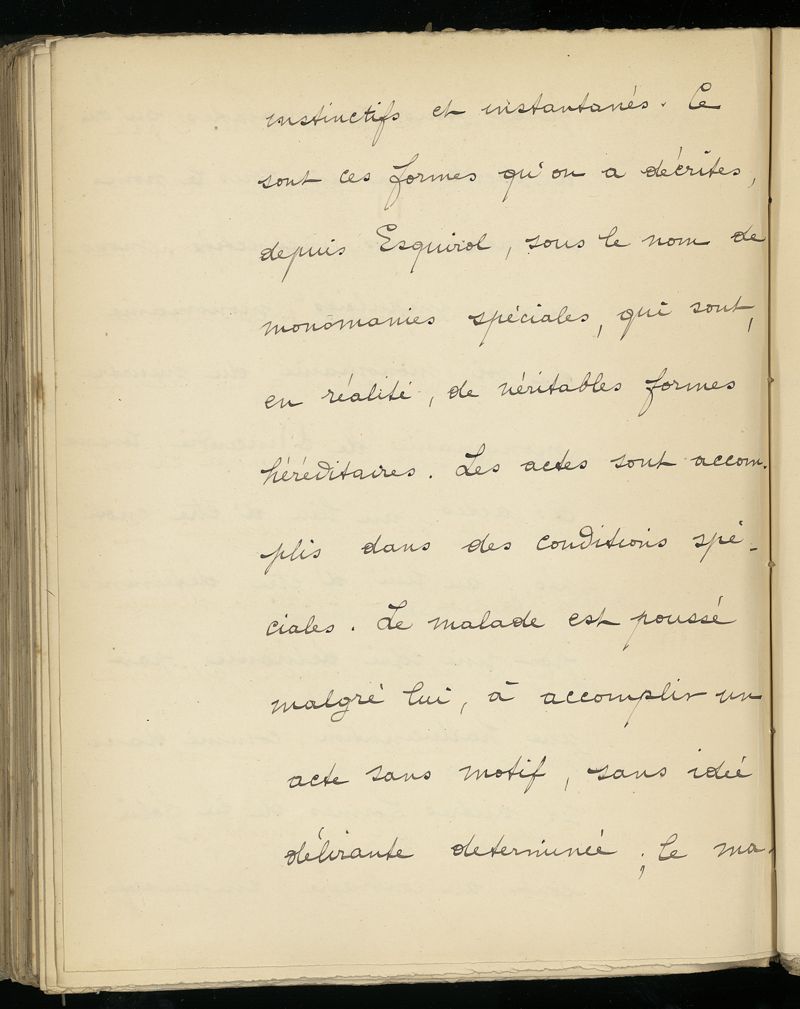 instinctifs et instantanés. Ce
sont ces formes qu'on a décrites,
depuis Esquirol, sous le nom de
monomanies spéciales, qui sont,
en réalité, de véritables formes
héréditaires. Les actes sont accom-
plis dans des conditions spé-
ciales. Le malade est poussé
malgré lui, à accomplir un
acte sans motif, sans idée
délirante determinée; le ma-